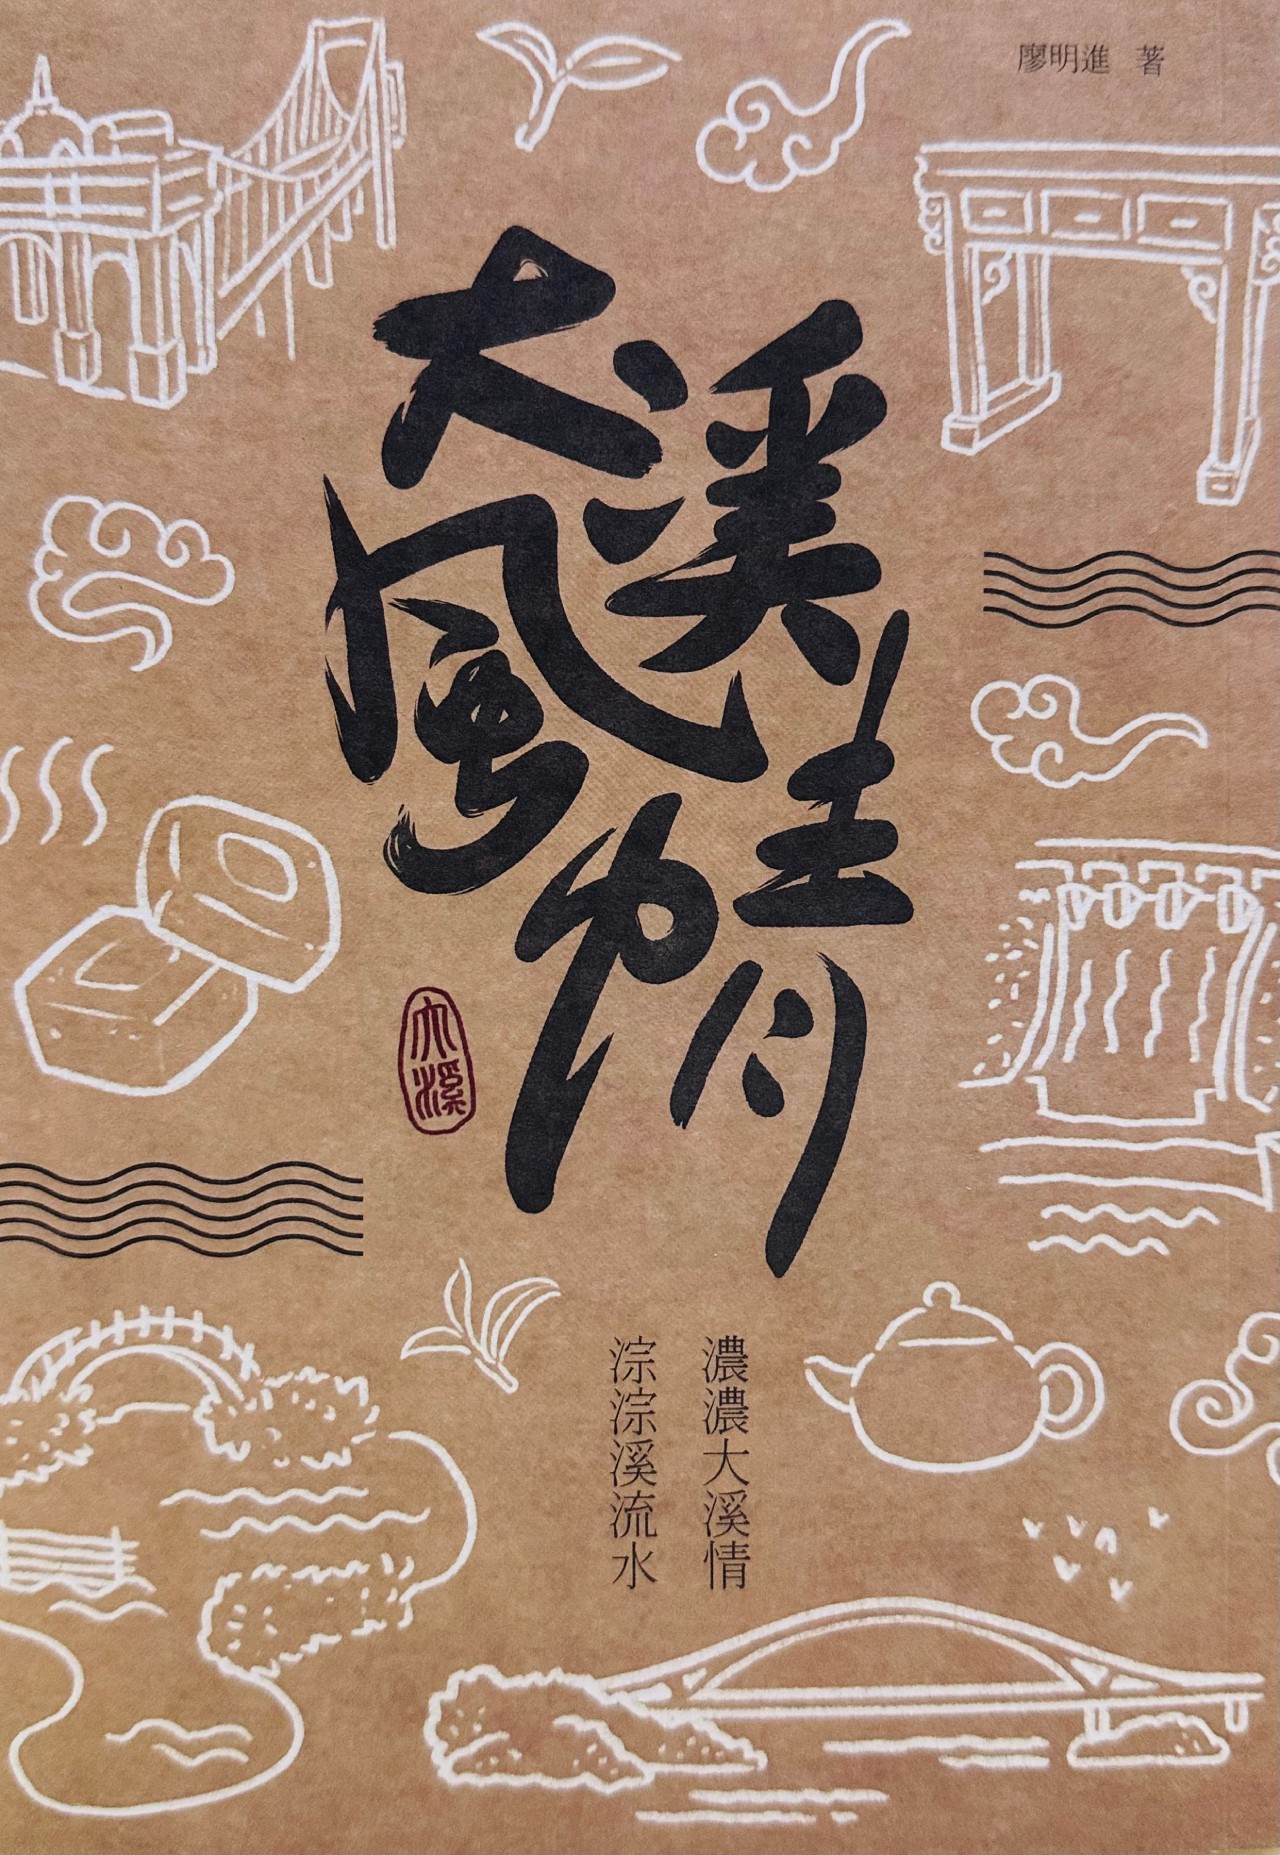 廖明進 著
大溪
風情
大溪
濃濃大溪情
淙淙溪流水